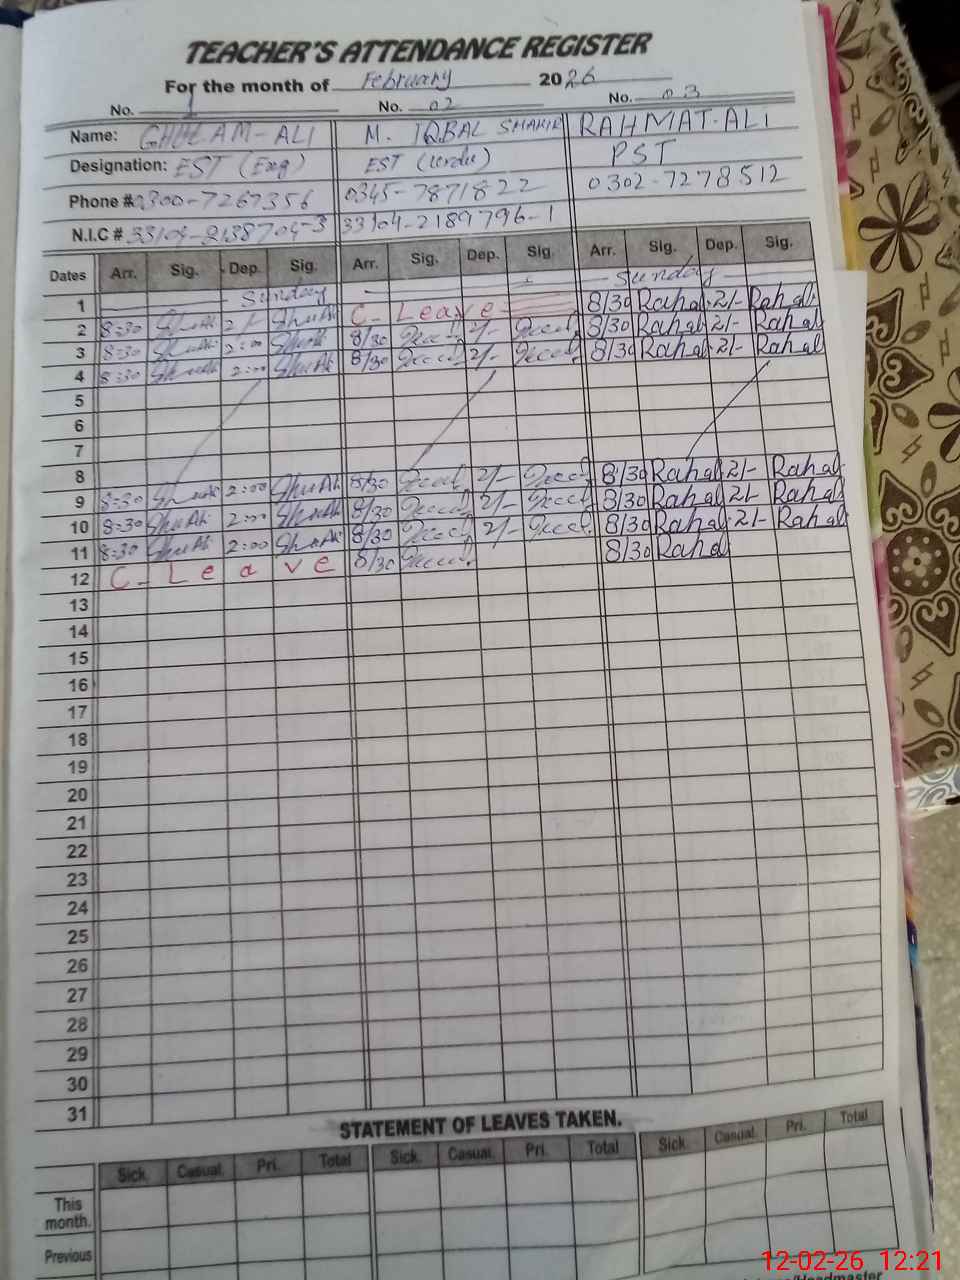 TEACHER'S ATTENDANCE REGISTER
For the month of February 2026
No. 1 No. 02 No. 03
Name: GHULAM-ALI M. IQBAL SHAKIR RAHMAT-ALI
Designation: EST (Eng) EST (Urdu) PST
Phone # 0300-7267356 0345-7871822 0302-7278512
N.I.C # 33104-2138704-3 33104-2189796-1
Dates Arr. Sig. Dep. Sig. Arr. Sig. Dep. Sig. Arr. Sig. Dep. Sig.
1 Sunday Sunday
2 8:30 2/- C- Leave 8/30 Rahal 2/- Rahal
3 8:30 2:00 8/30 2/- 8/30 Rahal 2/- Rahal
4 8:30 2:00 8/30 2/- 8/30 Rahal 2/- Rahal
5
6
7
8
9 8:30 2:00 8/30 2/- 8/30 Rahal 2/- Rahal
10 8:30 2:00 8/30 2/- 8/30 Rahal 2/- Rahal
11 8:30 2:00 8/30 2/- 8/30 Rahal 2/- Rahal
12 C- Leave 8/30 8/30 Rahal
13
14
15
16
17
18
19
20
21
22
23
24
25
26
27
28
29
30
31
STATEMENT OF LEAVES TAKEN.
Sick. Casual. Pri. Total Sick. Casual. Pri. Total Sick. Casual. Pri. Total
This month.
Previous
12-02-26 12:21
/Headmaster